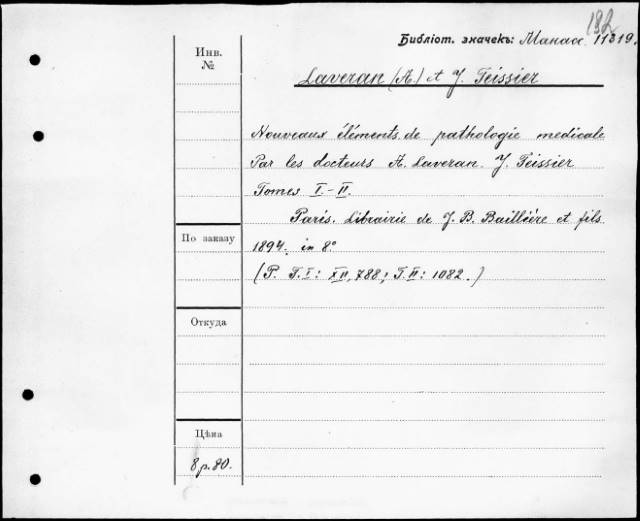 132
Библіот. значекъ: Манасс. 11319.
Инв. №
Laveran (A.) et J. Teissier
Nouveaux éléments de pathologie medicale
Par les docteurs A. Laveran. J. Teissier
Tomes I-II.
Paris. Librairie de J. B. Baillière et fils
1894. in 8°
(P. T. I: XII, 788; T. II: 1082.)
По заказу
Откуда
Цѣна
8 р. 80.